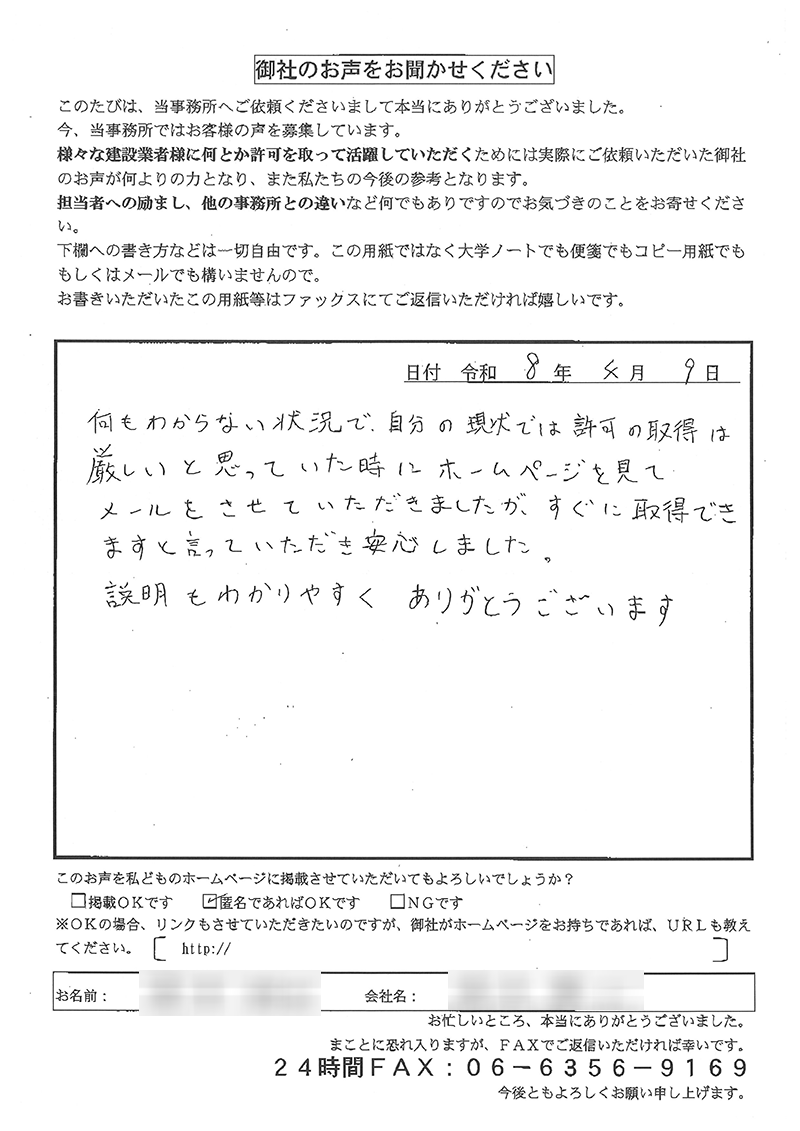 御社のお声をお聞かせください
このたびは、当事務所へご依頼くださいまして本当にありがとうございました。
今、当事務所ではお客様の声を募集しています。
様々な建設業者様に何とか許可を取って活躍していただくためには実際にご依頼いただいた御社
のお声が何よりの力となり、また私たちの今後の参考となります。
担当者への励まし、他の事務所との違いなど何でもありですのでお気づきのことをお寄せくださ
い。
下欄への書き方などは一切自由です。この用紙ではなく大学ノートでも便箋でもコピー用紙でも
もしくはメールでも構いませんので。
お書きいただいたこの用紙等はファックスにてご返信いただければ嬉しいです。
日付 令和 8 年 月 9 日
何もわからない状況で、自分の現状では許可の取得は
厳しいと思っていた時にホームページを見て
メールをさせていただきましたが、すぐに取得でき
ますと言っていただき安心しました。
説明もわかりやすく ありがとうございます
このお声を私どものホームページに掲載させていただいてもよろしいでしょうか？
□掲載OKです ☑匿名であればOKです □NGです
※OKの場合、リンクもさせていただきたいのですが、御社がホームページをお持ちであれば、URLも教え
てください。 [ http:// ]
お名前： 会社名：
お忙しいところ、本当にありがとうございました。
まことに恐れ入りますが、FAXでご返信いただければ幸いです。
24時間FAX：06－6356－9169
今後ともよろしくお願い申し上げます。